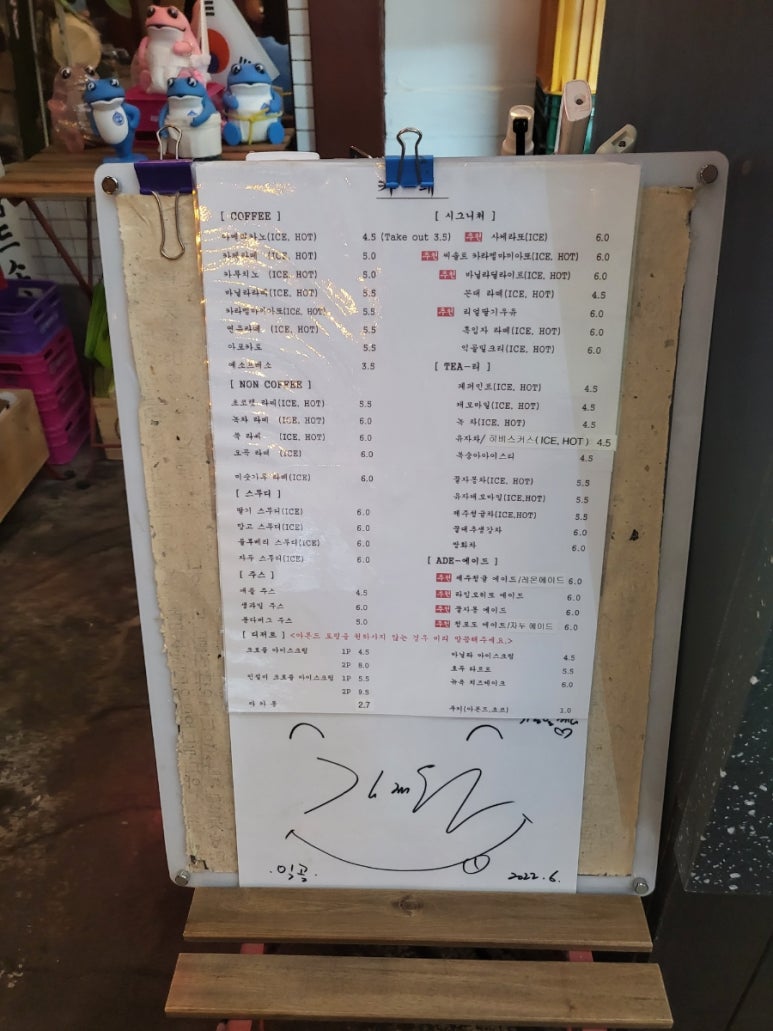 [ COFFEE ]
아메리카노(ICE, HOT) 4.5 (Take out 3.5)
카페라떼 (ICE, HOT) 5.0
카푸치노 (ICE, HOT) 5.0
바닐라라떼(ICE, HOT) 5.5
카라멜마끼아또(ICE, HOT) 5.5
연유라떼 (ICE, HOT) 5.5
아포카토 5.5
에소프레소 3.5
[ NON COFFEE ]
초코렛 라떼(ICE, HOT) 5.5
녹차 라떼 (ICE, HOT) 6.0
쑥 라떼 (ICE, HOT) 6.0
오곡 라떼 (ICE) 6.0
미숫가루 라떼(ICE) 6.0
[ 스무디 ]
딸기 스무디(ICE) 6.0
망고 스무디(ICE) 6.0
블루베리 스무디(ICE) 6.0
자두 스무디(ICE) 6.0
[ 주스 ]
애플 주스 4.5
생과일 주스 6.0
5.0
[ 디저트 ] <아몬드 토핑을 원하시지 않는 경우 미리 말씀해주세요.>
크로플 아이스크림 1P 4.5
2P 8.0
인절미 크로플 아이스크림 1P 5.5
2P 9.5
2.7
[ 시그니처 ]
추천 샤케라또(ICE) 6.0
추천 씨솔트 카라멜마끼아또(ICE, HOT) 6.0
추천 바닐라딜라이트(ICE, HOT) 6.0
라떼(ICE, HOT) 4.5
추천 리얼딸기우유 6.0
흑임자 라떼(ICE, HOT) 6.0
익골밀크티(ICE, HOT) 6.0
[ TEA-티 ]
페퍼민트(ICE, HOT) 4.5
캐모마일(ICE, HOT) 4.5
녹 차(ICE, HOT) 4.5
유자차/ 히비스커스(ICE, HOT) 4.5
복숭아아이스티 4.5
꿀자몽차(ICE, HOT) 5.5
유자캐모마일(ICE,HOT) 5.5
제주청귤차(ICE,HOT) 5.5
꿀대추생강차 6.0
쌍화차 6.0
[ ADE-에이드 ]
추천 제주청귤 에이드/레몬에이드 6.0
추천 라임모히또 에이드 6.0
추천 꿀자몽 에이드 6.0
추천 청포도 에이드/자두 에이드 6.0
바닐라 아이스크림 4.5
호두 타르트 5.5
뉴욕 치즈케이크 6.0
쿠키(아몬드,초코) 3.0
익골.
2022.6.